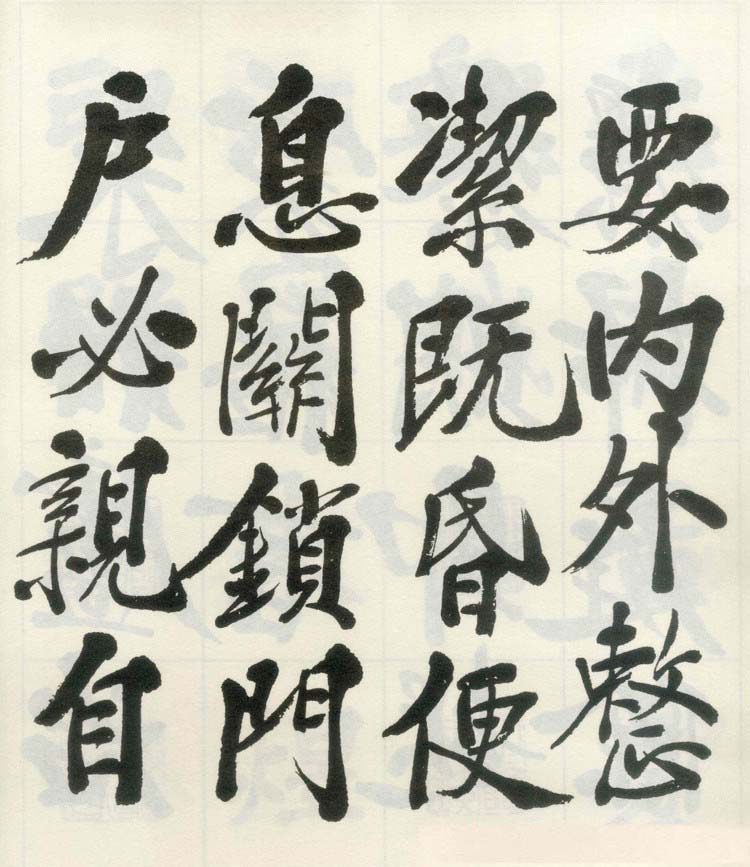 要內外整
潔既昏便
息關鎖門
戶必親自